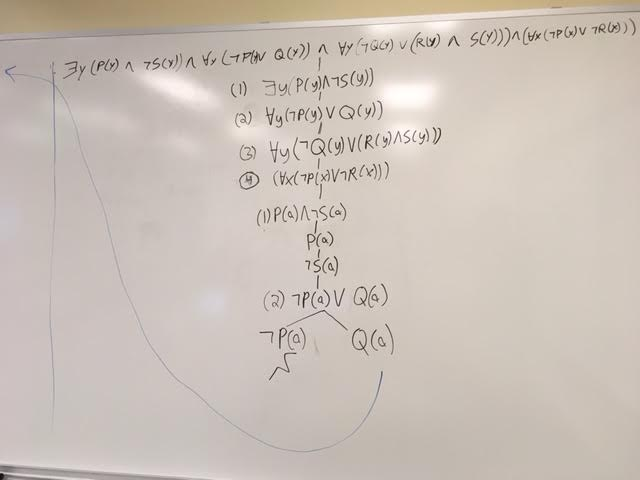 ∃y (P(y) ∧ ¬S(y)) ∧ ∀y (¬P(y) ∨ Q(y)) ∧ ∀y (¬Q(y) ∨ (R(y) ∧ S(y))) ∧ (∀x (¬P(x) ∨ ¬R(x)))
(1) ∃y (P(y) ∧ ¬S(y))
(2) ∀y (¬P(y) ∨ Q(y))
(3) ∀y (¬Q(y) ∨ (R(y) ∧ S(y)))
④ (∀x (¬P(x) ∨ ¬R(x)))
(1) P(a) ∧ ¬S(a)
P(a)
¬S(a)
(2) ¬P(a) ∨ Q(a)
¬P(a) Q(a)